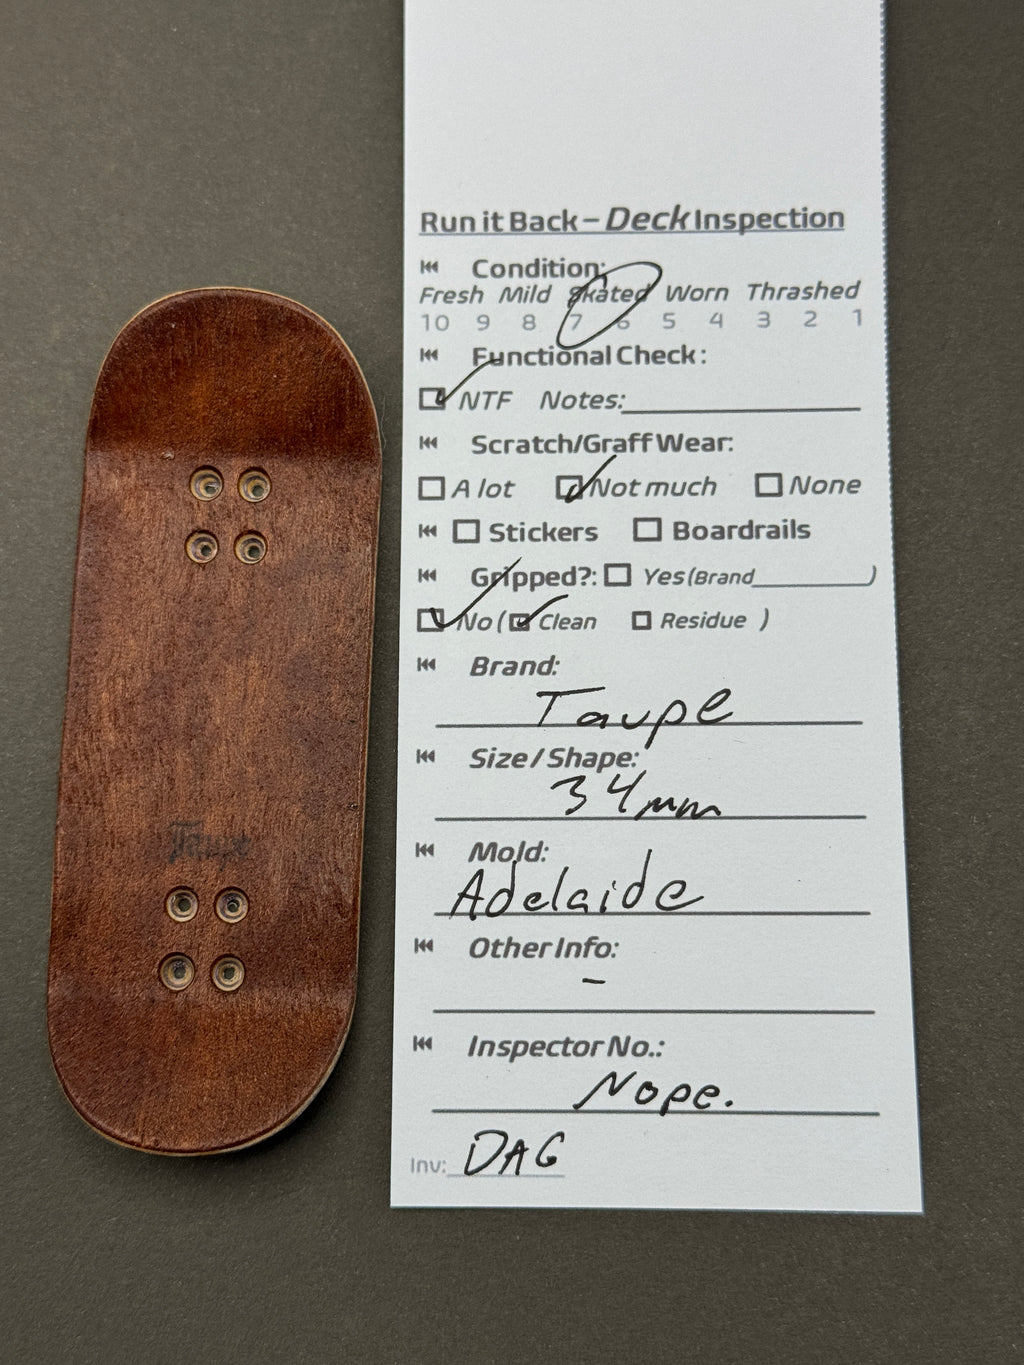 Run it Back – Deck Inspection
Condition:
Fresh Mild Skated Worn Thrashed
10 9 8 7 6 5 4 3 2 1
Functional Check:
NTF Notes:
Scratch/Graff Wear:
A lot Not much None
Stickers Boardrails
Gripped?: Yes (Brand )
No ( Clean Residue )
Brand:
Taupe
Size / Shape:
34mm
Mold:
Adelaide
Other Info:
–
Inspector No.:
Nope.
Inv: DAG